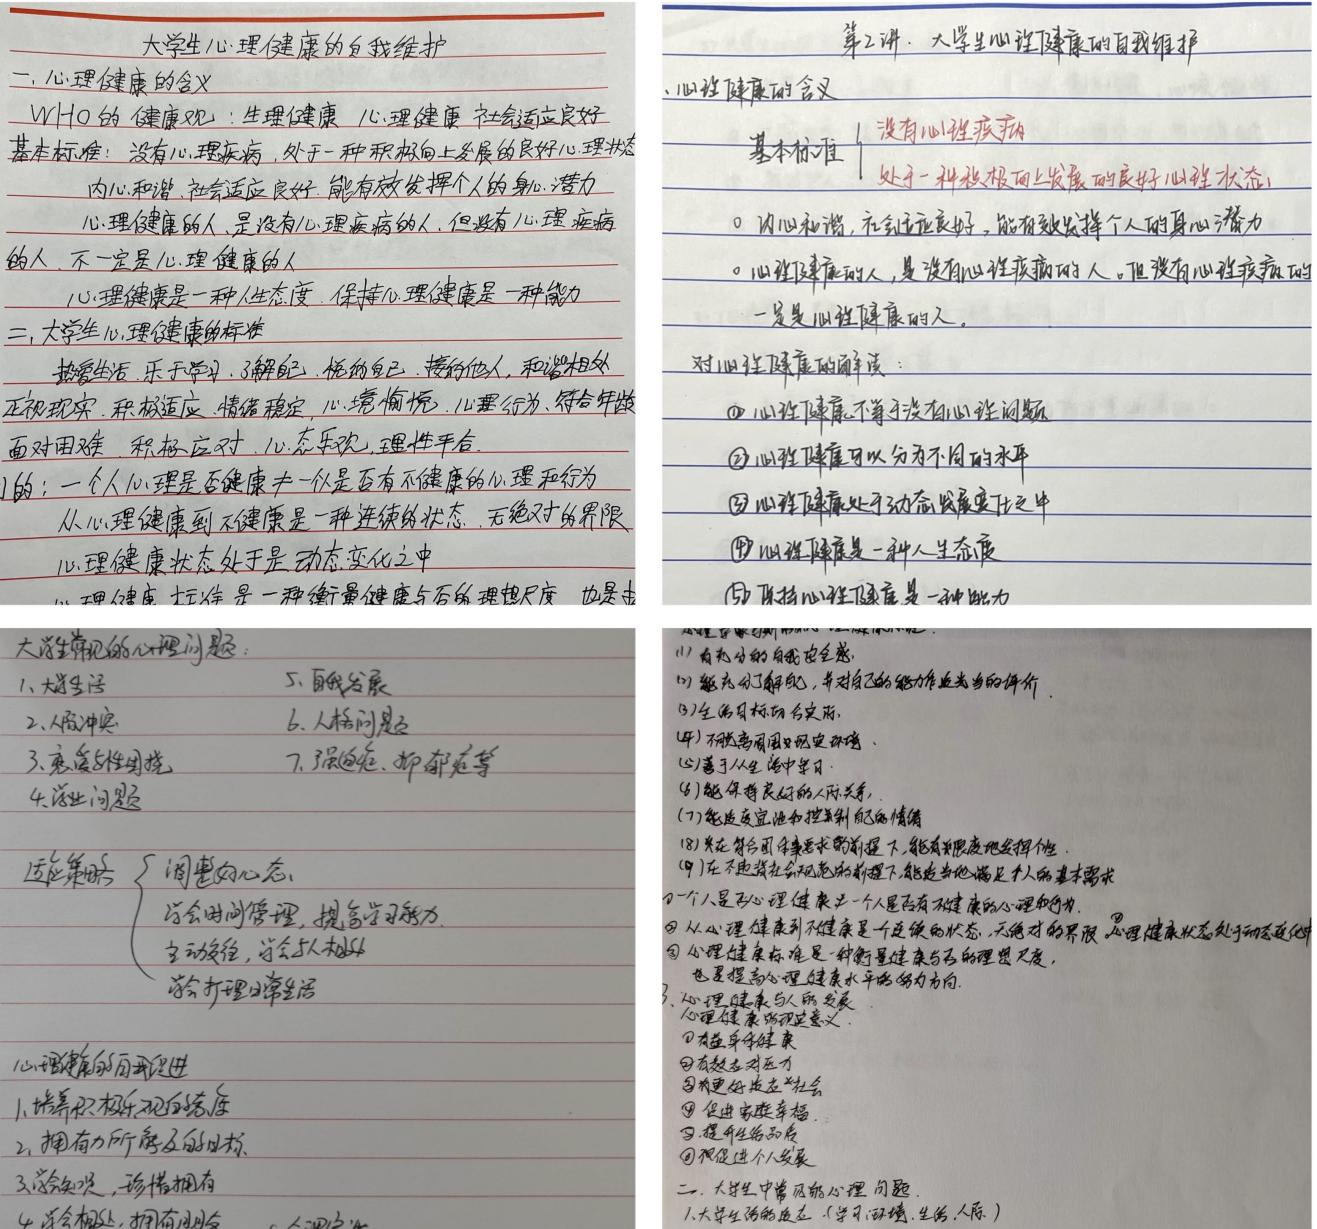 大学生心理健康的自我维护
一、心理健康的含义
WHO的健康观：生理健康 心理健康 社会适应良好
基本标准：没有心理疾病，处于一种积极向上发展的良好心理状态
内心和谐、社会适应良好、能有效发挥个人的身心潜力
心理健康的人、是没有心理疾病的人、但没有心理疾病
的人、不一定是心理健康的人
心理健康是一种人生态度、保持心理健康是一种能力
二、大学生心理健康的标准
热爱生活、乐于学习、了解自己、悦纳自己、接纳他人，和谐相处
正视现实、积极适应、情绪稳定，心境愉悦、心理行为、符合年龄
面对困难、积极应对、心态乐观，理性平合.
的：一个人心理是否健康≠一个人是否有不健康的心理和行为
从心理健康到不健康是一种连续的状态、无绝对的界限
心理健康状态处于是动态变化之中
心理健康标准是一种衡量健康与否的理想尺度 也是
第2讲. 大学生心理健康的自我维护
、心理健康的含义
基本标准 { 没有心理疾病
处于一种积极向上发展的良好心理状态；
○ 内心和谐，社会适应良好，能有效发挥个人的身心潜力
○ 心理健康的人，是没有心理疾病的人。但没有心理疾病的
一定是心理健康的人。
对心理健康的解读：
① 心理健康不等于没有心理问题
② 心理健康可以分为不同的水平
③ 心理健康处于动态发展变化之中
④ 心理健康是一种人生态度
⑤ 保持心理健康是一种能力
大学生常见的心理问题：
1、大学生活
2、人际冲突
3、恋爱与性困扰
4、学业问题
5、自我发展
6、人格问题
7、强迫症、抑郁症等
适应策略 { 调整好心态
学会时间管理，提高学习能力
主动交往，学会与人相处
学会打理日常生活
心理健康的自我促进
1、培养积极乐观的态度
2、拥有力所能及的目标
3、学会知足，珍惜拥有
4、学会相处，拥有
(1) 有充分的自我安全感.
(2) 能充分了解自己，并对自己的能力作出适当的评价
(3) 生活目标切合实际.
(4) 不脱离周围现实环境.
(5) 善于从生活中学习.
(6) 能保持良好的人际关系.
(7) 能适度宣泄和控制自己的情绪
(8) 在符合团体要求的前提下，能有限度地发挥个性.
(9) 在不违背社会规范的前提下，能适当地满足个人的基本需求
①一个人是否心理健康≠一个人是否有不健康的心理和行为.
② 从心理健康到不健康是个连续的状态，无绝对的界限 ③心理健康状态处于动态变化中
③ 心理健康标准是一种衡量健康与否的理想尺度，
也是提高心理健康水平的努力方向.
3. 心理健康与人的发展
心理健康的现实意义.
①有益身体健康
②有效应对压力
③更好适应社会
④促进家庭幸福.
⑤.提升生活品质
⑥促进个人发展
二. 大学生中常见的心理问题.
1.大学生活的适应（学习、环境、生活、人际）